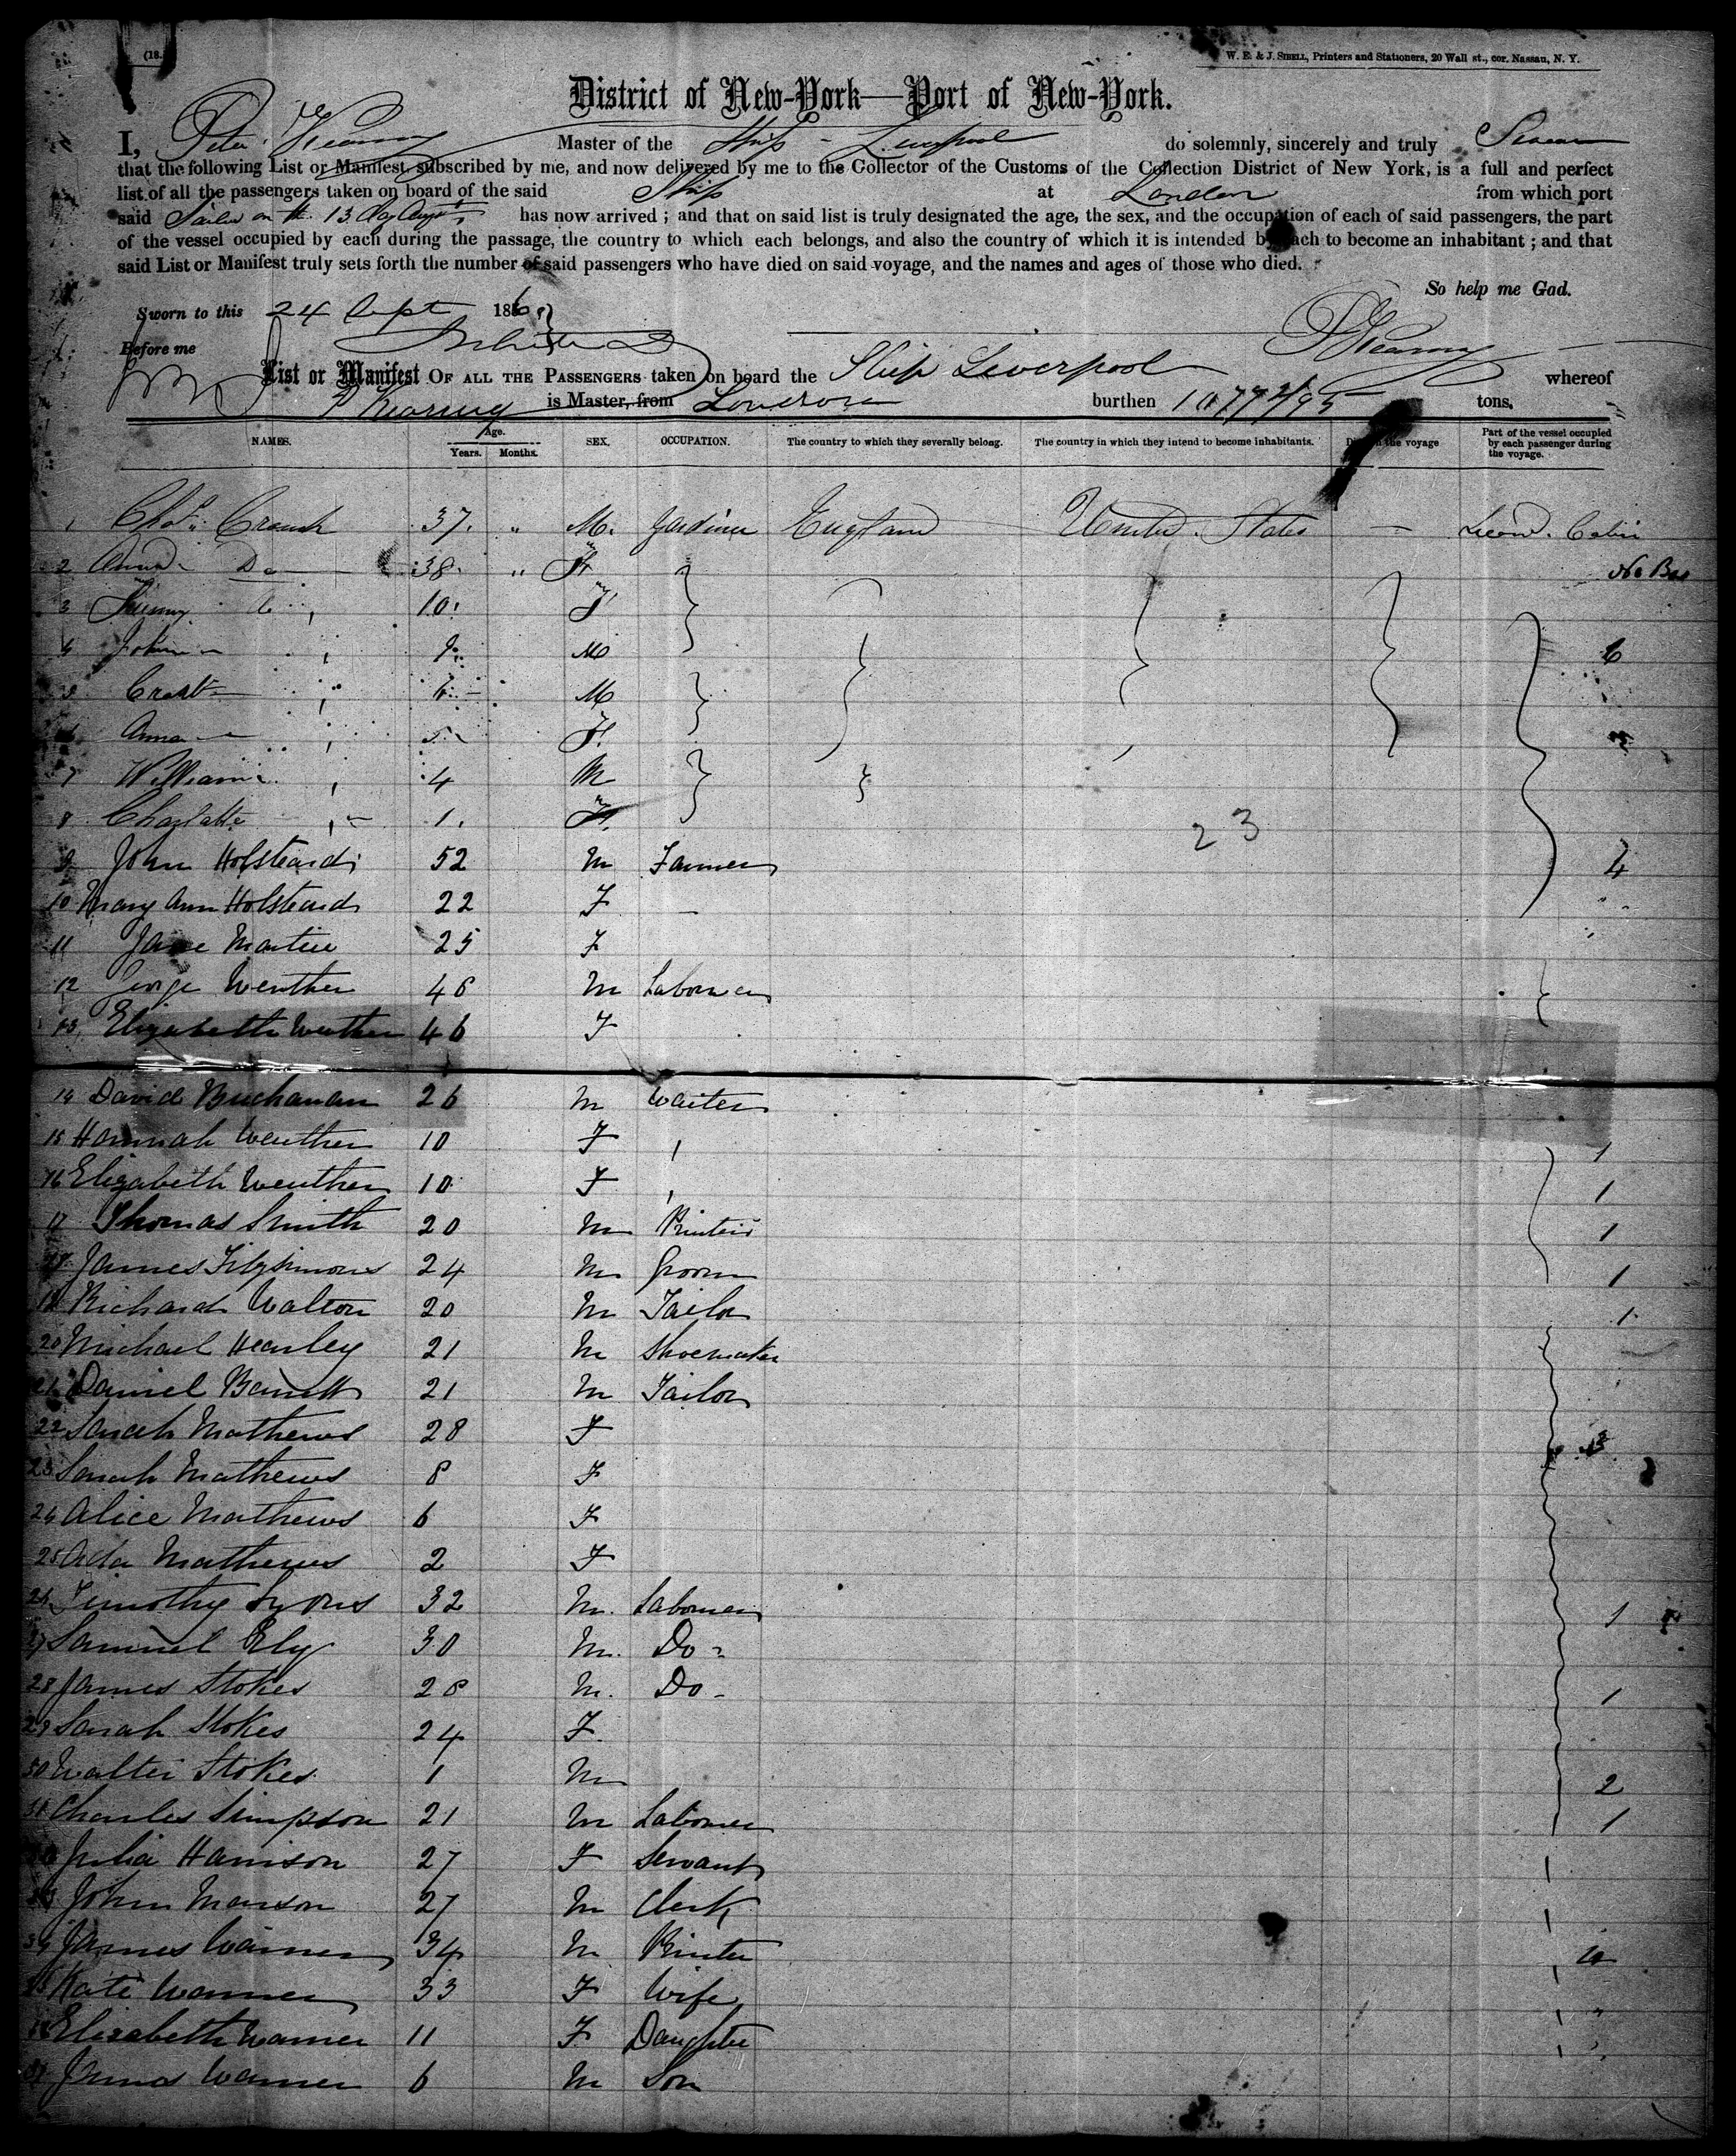 (18.
W. E. & J. SIBELL, Printers and Stationers, 20 Wall st., cor. Nassau, N. Y.
District of New-York—Port of New-York.
I, Peter Kearny Master of the Ship Liverpool do solemnly, sincerely and truly Swear
that the following List or Manifest, subscribed by me, and now delivered by me to the Collector of the Customs of the Collection District of New York, is a full and perfect
list of all the passengers taken on board of the said Ship at London from which port
said Sailed on the 13 day Augt has now arrived ; and that on said list is truly designated the age, the sex, and the occupation of each of said passengers, the part
of the vessel occupied by each during the passage, the country to which each belongs, and also the country of which it is intended by each to become an inhabitant ; and that
said List or Manifest truly sets forth the number of said passengers who have died on said voyage, and the names and ages of those who died.
So help me God.
Sworn to this 24 Sept 186
Before me
P Kearny
List or Manifest OF ALL THE PASSENGERS taken on board the Ship Liverpool whereof
P Kearny is Master, from London burthen 1077 2/95 tons.
NAMES. Age. Years. Months. SEX. OCCUPATION. The country to which they severally belong. The country in which they intend to become inhabitants. Died on the voyage Part of the vessel occupied by each passenger during the voyage.
1 Chas. Crouch 37 " M. Gardiner England United States — Second Cabin
2 Anna Do 38 " F
3 10 F
4 John M
5 M
6 Anna 5 F
7 William 4 M
8 Charlotte 1 F
23
9 John Holsteard 52 M Farmer 4
10 Mary Ann Holsteard 22 F —
11 Jane Martin 25 F
12 George Wenther 46 M Laborer
13 Elizabeth Wenther 46 F
14 David Buchanan 26 M Waiter
15 Hannah Wenther 10 F 1
16 Elizabeth Wenther 10 F 1
17 Thomas Smith 20 M Printer 1
18 James Fitzsimons 24 M Groom 1
19 Richard Walton 20 M Tailor 1
20 Michael Hearley 21 M Shoemaker
21 Daniel Barrett 21 M Tailor
22 Sarah Mathews 28 F
23 Sarah Mathews 8 F
24 Alice Mathews 6 F
25 Ada Mathews 2 F
26 Timothy Lyons 32 M. Laborer 1
27 Samuel Ely 30 M. Do
28 James Stokes 28 M. Do 1
29 Sarah Stokes 24 F.
30 Walter Stokes 1 M 2
31 Charles Simpson 21 M Laborer 1
32 Julia Harrison 27 F Servant
33 John Manson 27 M Clerk
34 James Warner 34 M Printer 4
35 Kate Warner 33 F Wife
36 Elizabeth Warner 11 F Daughter
37 James Warner 6 M Son